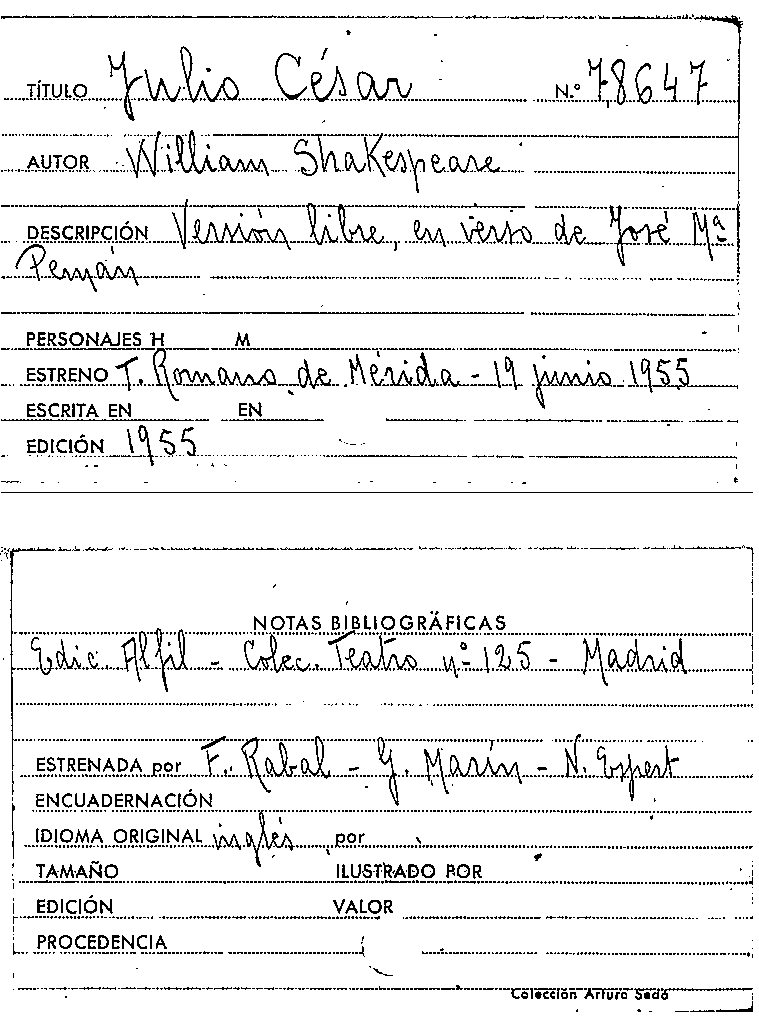 TÍTULO Julio César N.º 78647
AUTOR William Shakespeare
DESCRIPCIÓN Versión libre, en verso de José Mª
Pemán
PERSONAJES H M
ESTRENO T. Romano de Mérida - 19 junio 1955
ESCRITA EN EN
EDICIÓN 1955
NOTAS BIBLIOGRÁFICAS
Edic. Alfil - Colec. Teatro nº 125 - Madrid
ESTRENADA por F. Rabal - G. Marín - N. Espert
ENCUADERNACIÓN
IDIOMA ORIGINAL inglés por
TAMAÑO ILUSTRADO POR
EDICIÓN VALOR
PROCEDENCIA
Colección Arturo Sedó